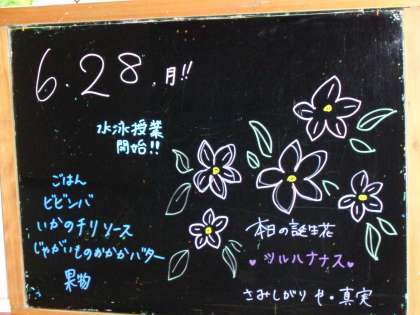 6.28.月!!
水泳授業
開始!!
ごはん
ビビンバ
いかのチリソース
じゃがいものおかかバター
果物
本日の誕生花
♥ツルハナナス♥
さみしがりや・真実